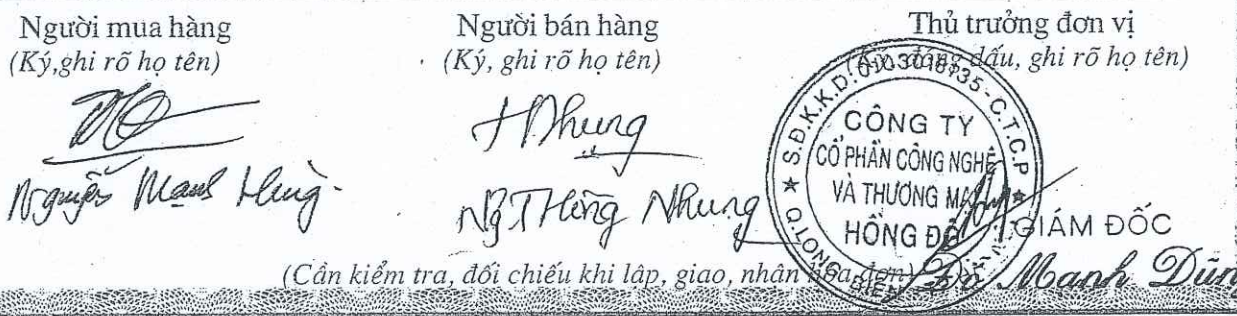 Người mua hàng
(Ký,ghi rõ họ tên)
Nguyễn Mạnh Hùng
Người bán hàng
(Ký, ghi rõ họ tên)
HNhung
Ng T Hồng Nhung
Thủ trưởng đơn vị
(Ký, đóng dấu, ghi rõ họ tên)
S.Đ.K.K.D: 0103018735-C.T.C.P
CÔNG TY
CỔ PHẦN CÔNG NGHỆ
VÀ THƯƠNG MẠI
HỒNG ĐÔ
Q.LONG BIÊN
GIÁM ĐỐC
Đỗ Mạnh Dũng
(Cần kiểm tra, đối chiếu khi lập, giao, nhận hóa đơn)